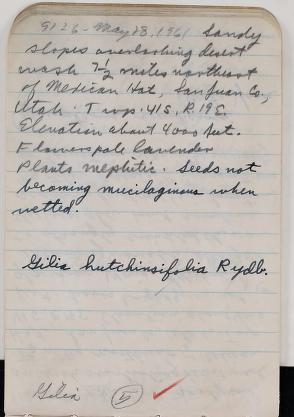 9126 - May 28, 1961 Sandy
slopes overlooking desert
wash 7½ miles northeast
of Mexican Hat, San Juan Co.,
Utah. Twp. 41S, R. 19E.
Elevation about 4000 feet.
Flowers pale lavender
Plants mephitic. Seeds not
becoming mucilaginous when
wetted.
Gilia hutchinsifolia Rydb.
Gilia 5 ✓